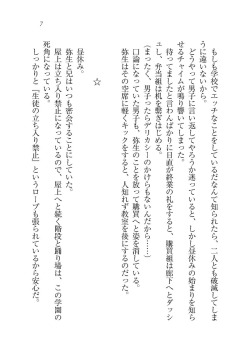 7
もしも学校でエッチなことをしているだなんて知られたら、二人とも破滅してしま
うに違いないから。
どうやって男子に言い返してやろうか迷っていると、しかし昼休みの始まりを知ら
せるチャイムが鳴り響いてしまった。
待ってましたと言わんばかりに日直が終業の礼をすると、購買組は廊下へとダッシ
ュし、弁当組は机を繋ぎはじめる。
（まったく、男子ったらデリカシーのかけらもないんだから……）
口論になっていた男子も、弥生のことを放って購買へと姿を消している。
弥生はその空席に軽くキックをすると、人知れず教室を後にするのだった。
☆
昼休み。
弥生と兄はいつも密会することにしていた。
屋上は立ち入り禁止になっているので、屋上へと続く階段と踊り場は、この学園の
死角になっている。
しっかりと『生徒の立ち入り禁止』というロープも張られているから安心だ。